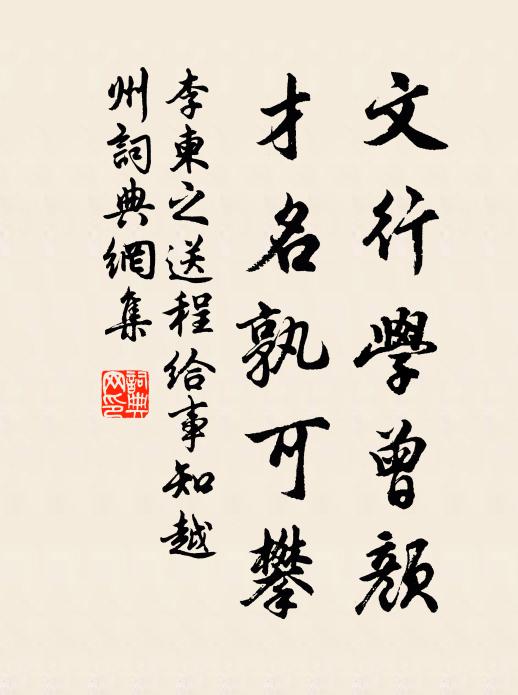 文行學曾顔
才名孰可攀
李東之送程給事知越
州詞典網集
詞典
网印